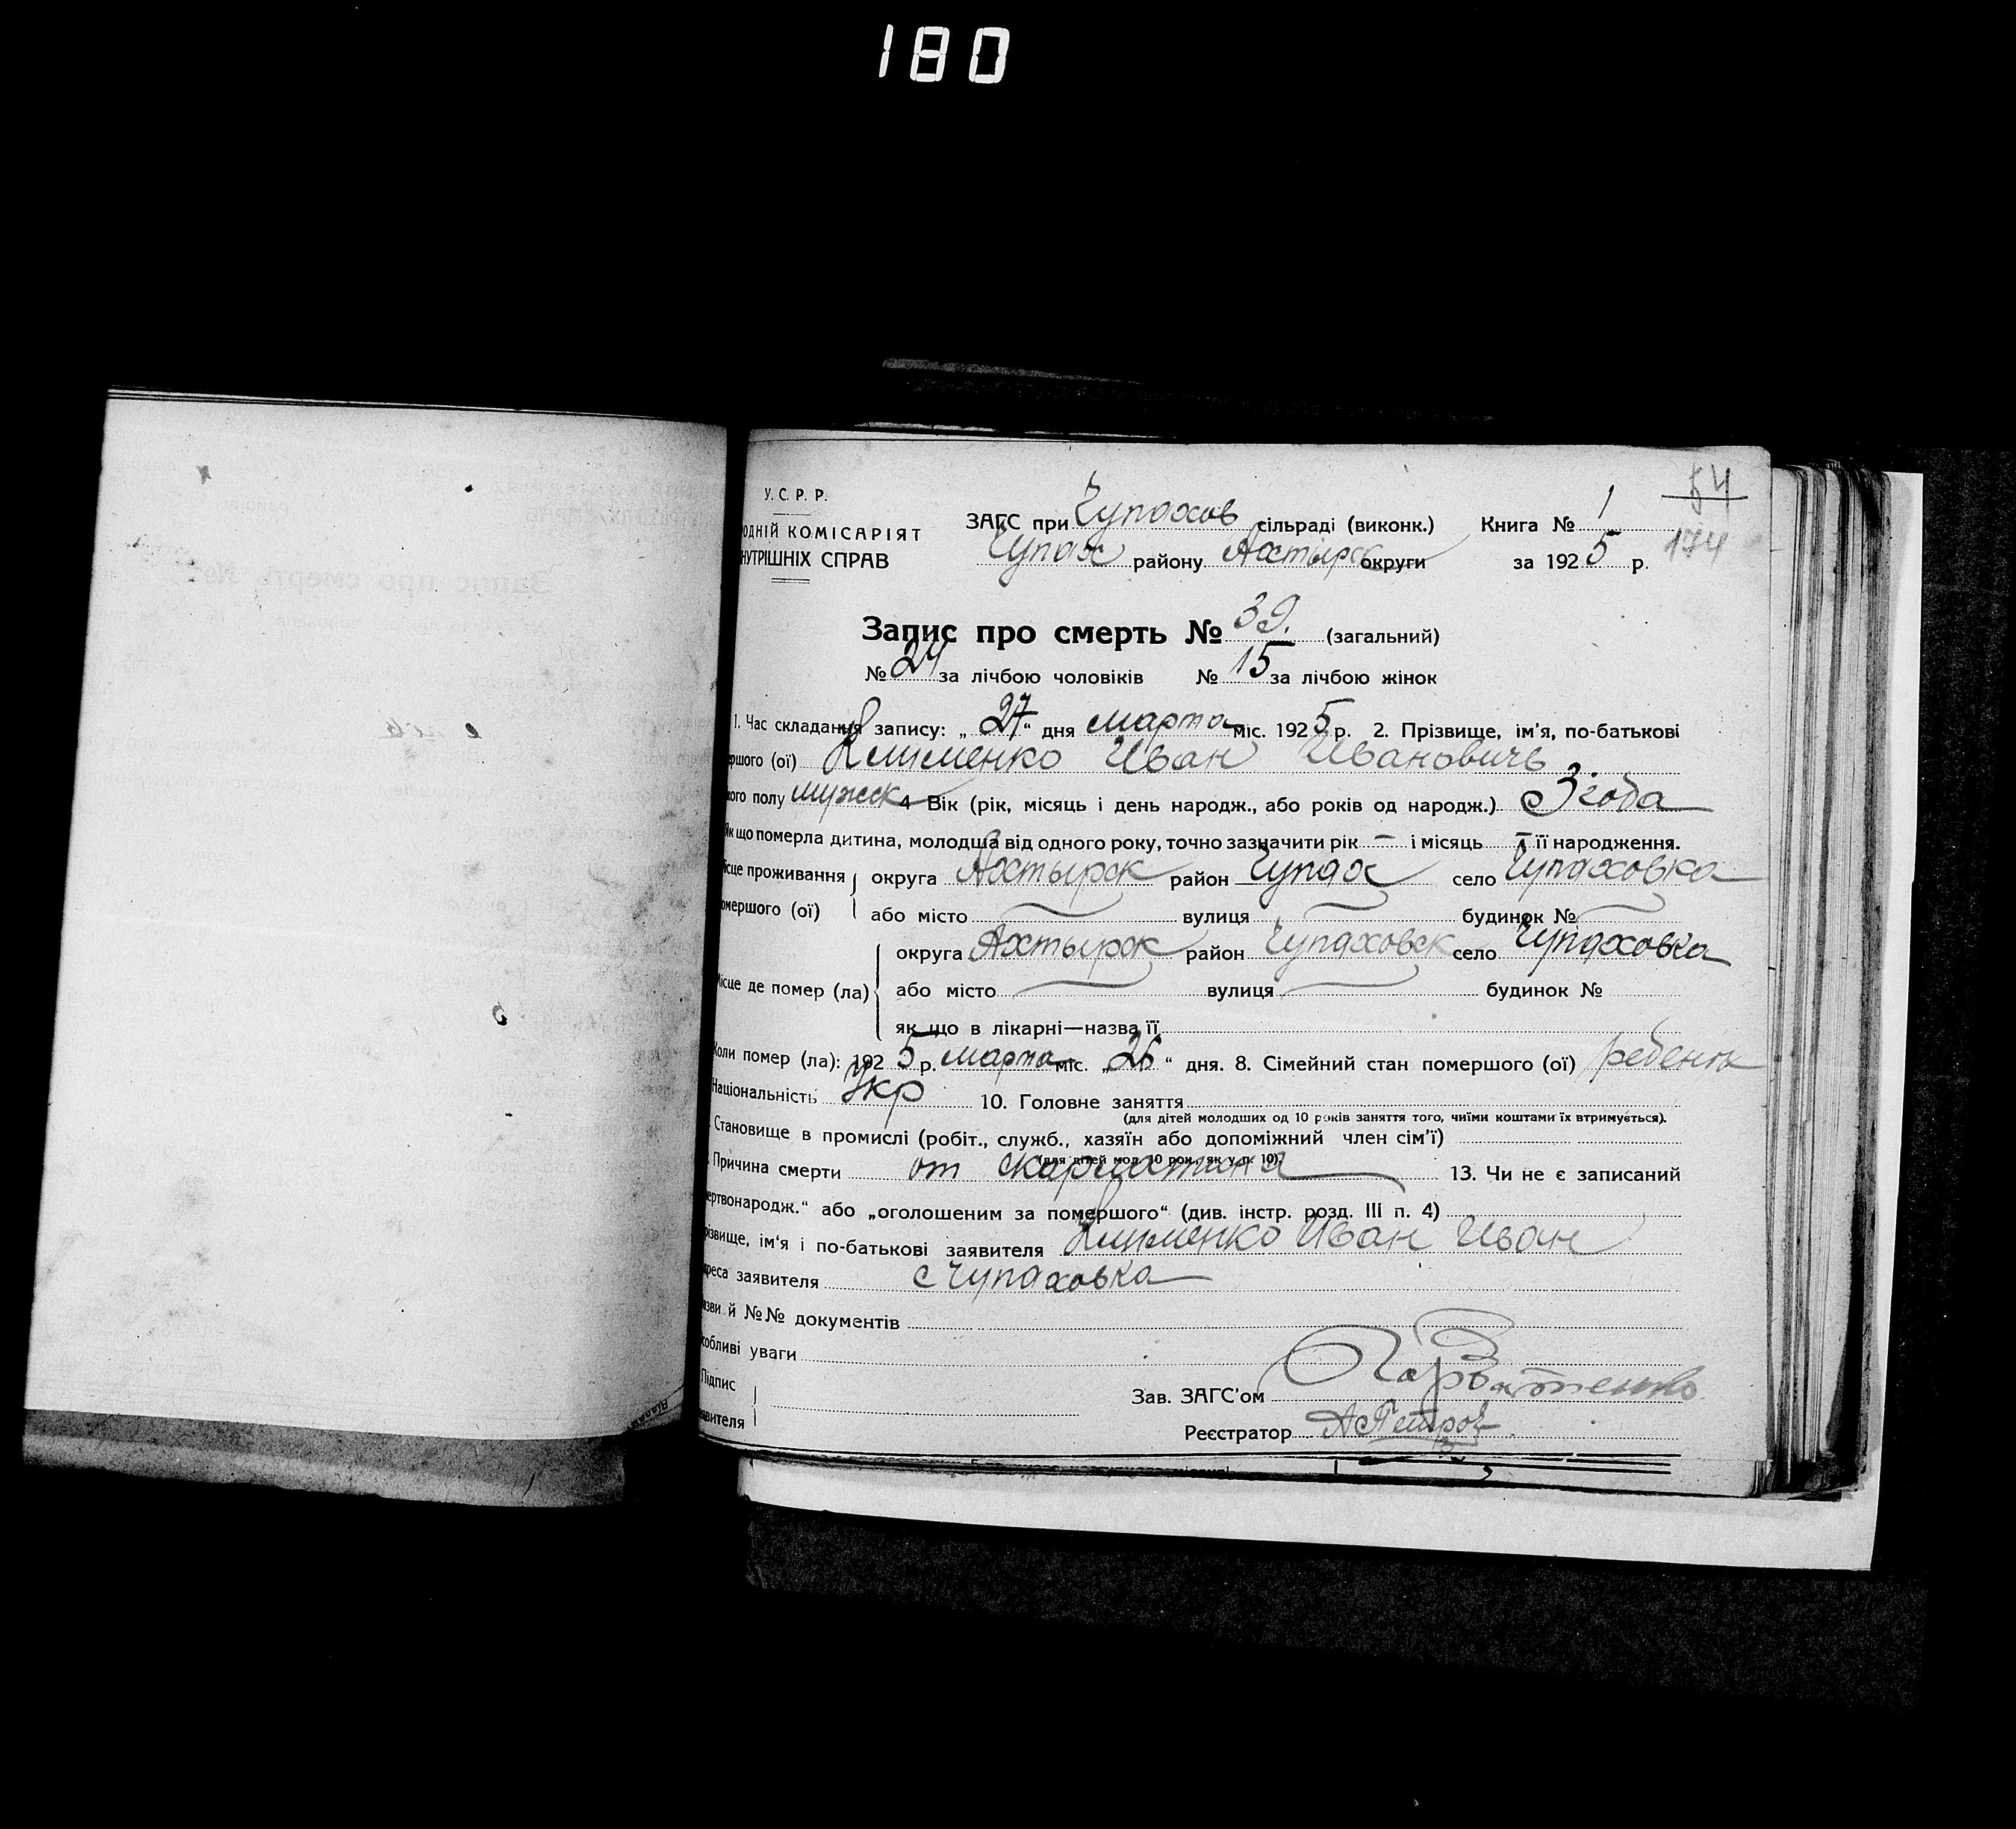 180
У. С. Р. Р.
ОДНІЙ КОМІСАРІЯТ
НУТРІШНІХ СПРАВ
54
174
ЗАГС при Чупахов сільраді (виконк.) Книга № 1
Чупах району Ахтырск округи за 1925 р.
Запис про смерть № 39. (загальний)
№ 24 за лічбою чоловіків № 15 за лічбою жінок
1. Час складання запису: „27“ дня марта міс. 1925 р. 2. Прізвище, ім'я, по-батькові
ершого (ої) Клименко Иван Ивановичъ
кого полу мужск 4 Вік (рік, місяць і день народж., або років од народж.) 3 года
Як що померла дитина, молодща від одного року, точно зазначити рік – і місяць – її народження.
ісце проживання округа Ахтырск район Чупах село Чупаховка
омершого (ої) або місто вулиця будинок №
округа Ахтырск район Чупаховск село Чупаховка
Місце де помер (ла) або місто вулиця будинок №
як що в лікарні—назва її
Коли помер (ла): 1925 р. марта міс. „26“ дня. 8. Сімейний стан помершого (ої) ребенок
Національність Укр 10. Головне заняття
(для дітей молодших од 10 років заняття того, чиїми коштами їх втримується).
Становище в промислі (робіт., служб., хазяїн або допоміжний член сім'ї)
(для дітей мол. 10 рок., як у п. 10).
Причина смерти от скарлатина 13. Чи не є записаний
ертвонародж.“ або „оголошеним за помершого“ (див. інстр. розд. III п. 4)
різвище, ім'я і по-батькові заявителя Клименко Иван Иван
реса заявителя с Чупаховка
зви й №№ документів
собливі уваги
Підпис
явителя
Зав. ЗАГС'ом
Реєстратор А Петров